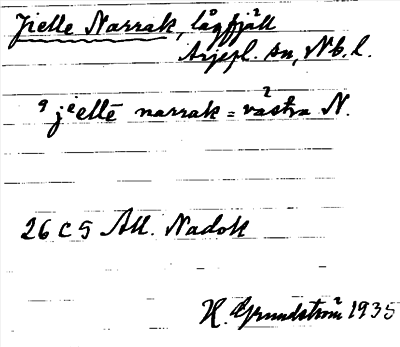 Jielle Narrak, lågfjäll
Arjepl. sn, Nb. l.
jiellē narrak = västra N.
26 C 5 All. Nadok
H. Grundström 1935